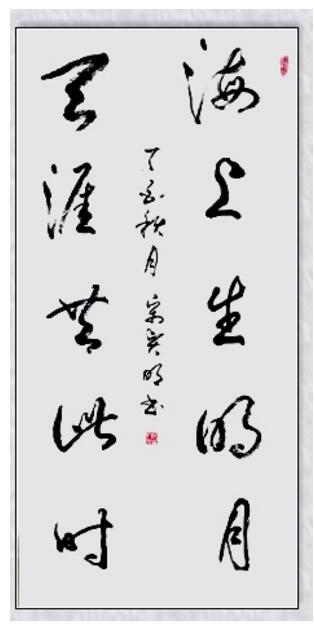 海上生明月
天涯共此时
丁亥秋月 明书